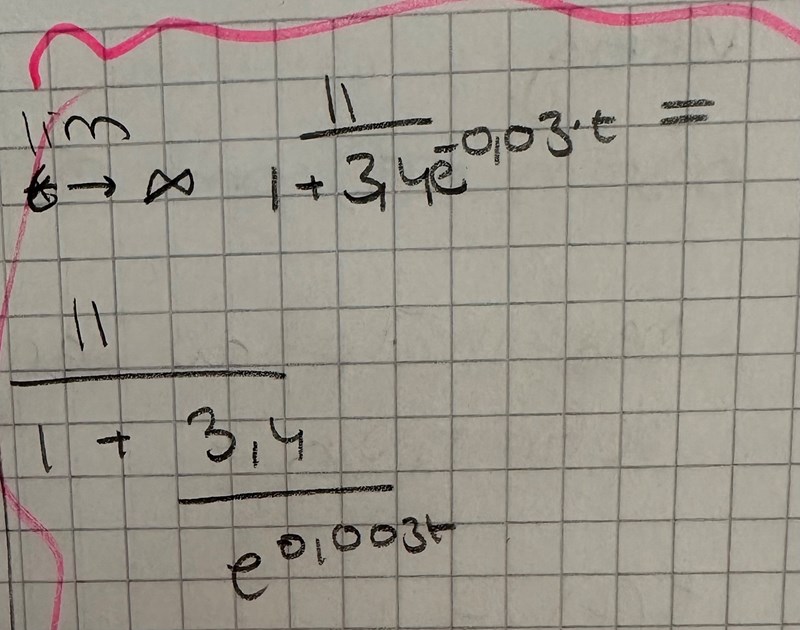 lim 11
t → ∞ 1 + 3,4e^-0,03·t =
11
1 + 3,4
e^0,003t